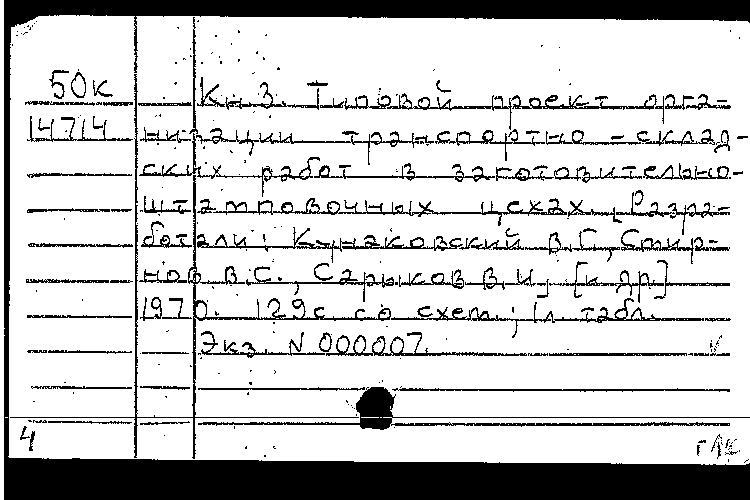 50к Кн 3. Типовой проект орга-
14714 низации транспортно-склад-
ских работ в заготовительно-
штамповочных цехах. [Разра-
ботали: Кунаковский В.Г., Смир-
нов В.С., Сарыков В.И] [и др]
1970. 129с. со схем.; 1л. табл.
Экз. N 000007.
4